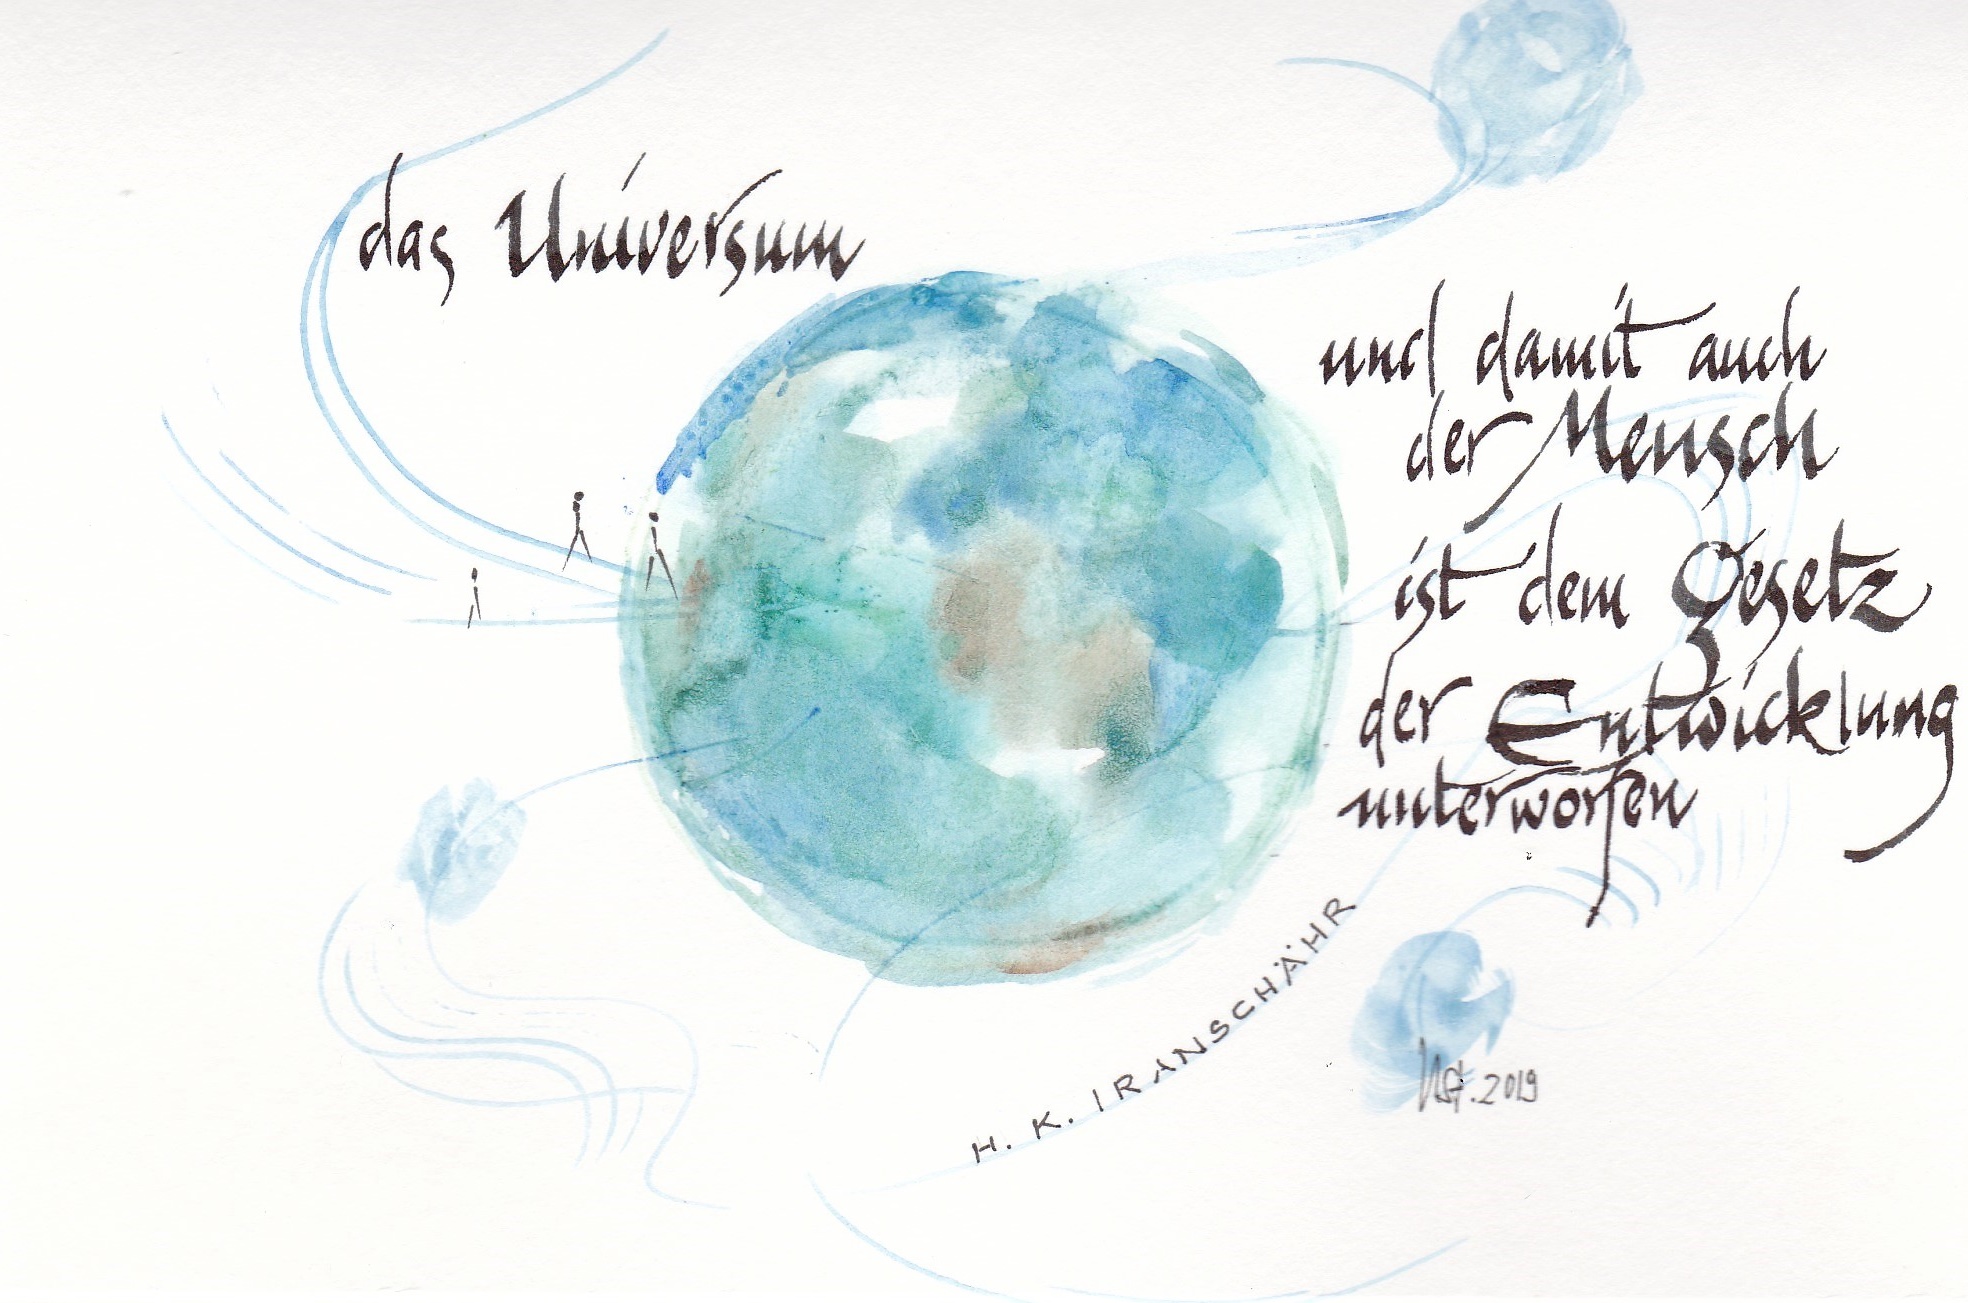 das Universum
und damit auch
der Mensch
ist dem Gesetz
der Entwicklung
unterworfen
H. K. IRANSCHÄHR
2019